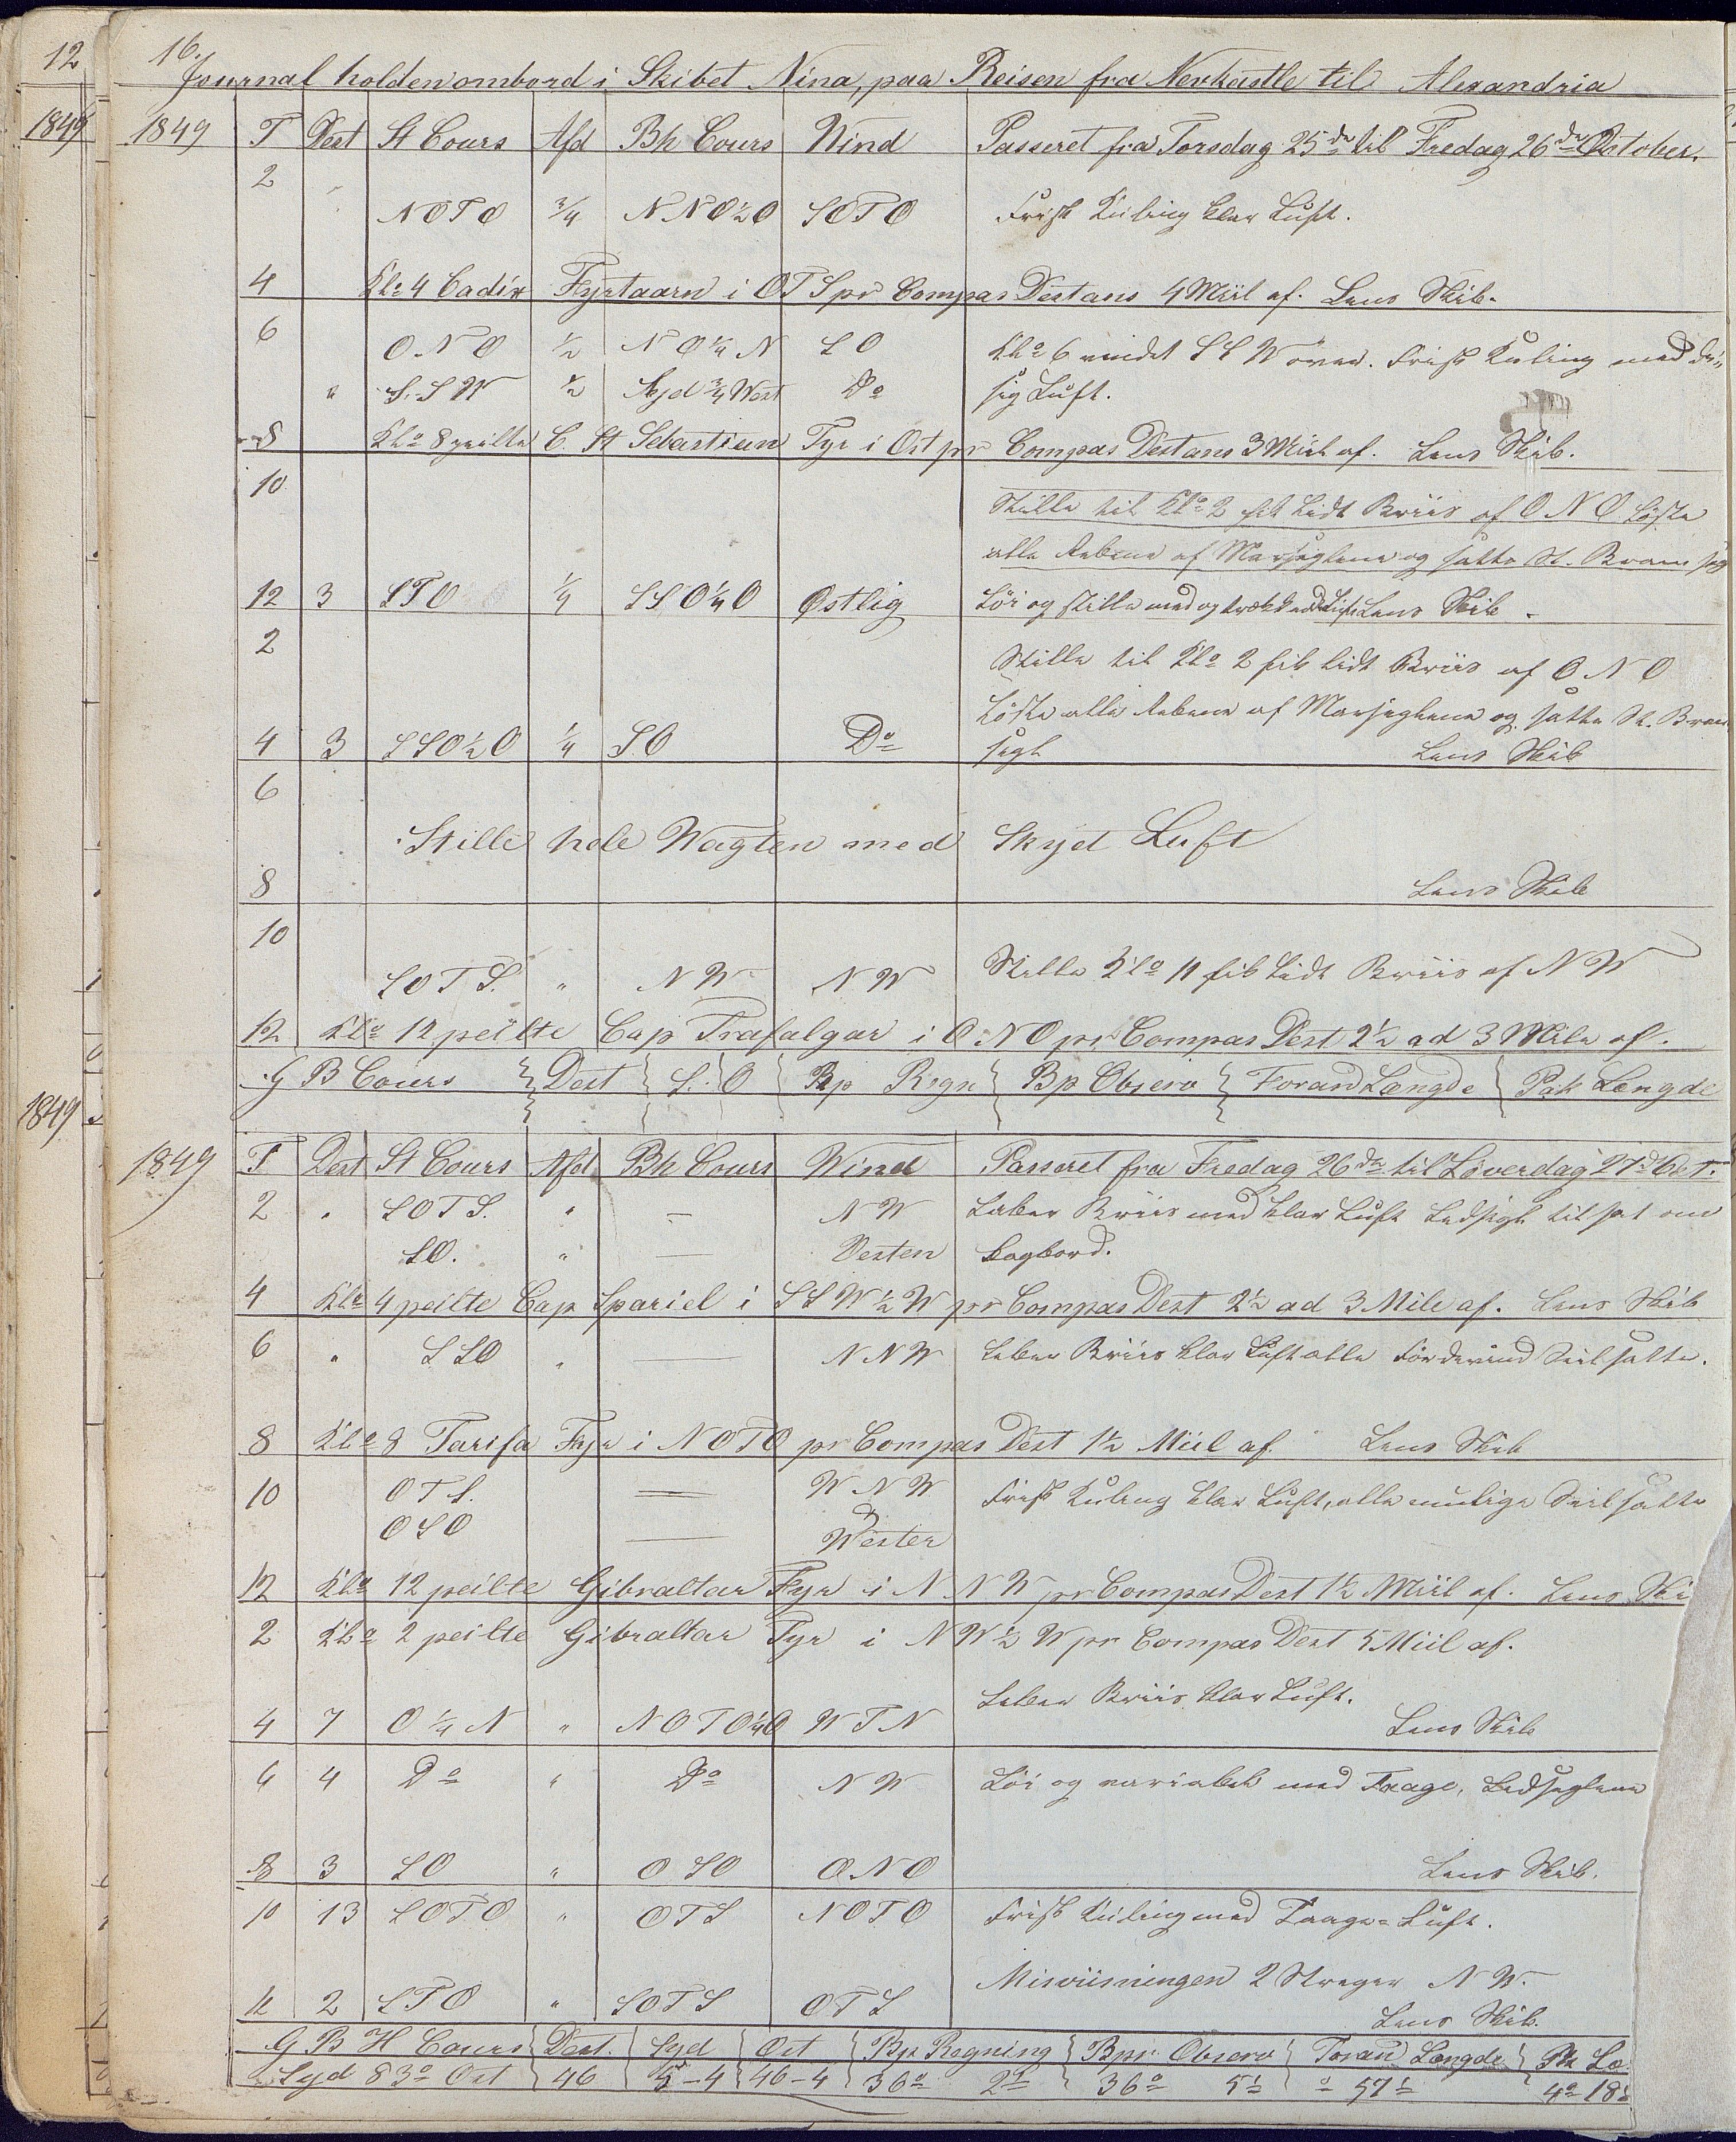 12
1849
1849
16.
Journal holden ombord i Skibet Nina, paa Reisen fra Nevkastle til Alexandria
1849 T Dest St Cours Afd Bh Cours Wind Passeret fra Torsdag 25de til Fredag 26de October.
2
NOTO 3/4 NNO½O SOTO Frisk Kuling klar Luft.
4 Klo 4 Cadix Fyrtaarn i OTS pr Compas Destans 4 Miil af. Lens Skib.
6 ONO ½ NO¼N SO Klo 6 vendt SSW over. Frisk Kuling med di=
" S.SW ½ Syd ¾ West Do sig Luft.
8 Klo 8 peilte C. St Sebastian Fyr i Ost pr Compas Destans 3 Miil af. Lens Skib.
10 Stille til Klo 2 fik lidt Briis af ONO löste
alle Rebene af Mersseglene og satte St. Bram seg
12 3 STO ¼ SSO¼O Østlig Löi og stille med og Luft Lens Skib.
2 Stille til Klo 2 fik lidt Briis af ONO
Löste alle Rebene af Merseglene og satte St. Bram
4 3 SSO½O ¼ SO Do segl Lens Skib
6
Stille hele Wagten med Skyet Luft
8 Lens Skib
10
SOTS. " NW NW Stille Klo 11 fik lidt Briis af NW
12 Klo 12 peilte Cap Trafalgar i ONO pr Compas Dest 2½ ad 3 Mile af.
G B Cours Dest S. O Bp Regn Bp Observ Forand Længde Pak Længde
1849 T Dest St Cours Afd Bh Cours Wind Passeret fra Fredag 26de til Löverdag 27d Oct.
2 " SOTS. " — NW Laber Briis med klar Luft Ledsegl tilsat om
SO. " — Vesten Bagbord.
4 Klo 4 peilte Cap Spariel i SSW½W pr Compas Dest 2½ ad 3 Mile af. Lens Skib
6 " SSO " — NNW Laber Briis klar Luft alle Fordevind Seil satte.
8 Klo 8 Tarifa Fyr i NOTO pr Compas Dest 1½ Miil af Lens Skib
10 OTS. — WNW Frisk Kuling klar Luft, alle mulige Seil satte
OSO — Wester
12 Klo 12 peilte Gibraltar Fyr i NNW pr Compas Dest 1½ Miil af. Lens Ski
2 Klo 2 peilte Gibraltar Fyr i NW½W pr Compas Dest 5 Miil af.
Laber Briis klar Luft.
4 7 O¼N " NOTO¼O WTN Lens Skib
6 4 Do " Do NW Löi og variabel med Taage, Ledseglene
8 3 SO " OSO ONO Lens Skib.
10 13 SOTO " OTS NOTO Frisk Kuling med Taage=Luft.
Misviisningen 2 Streger NW.
12 2 STO " SOTS OTS Lens Skib.
G B H Cours Dest. Syd Ost Bp Regning Bpr Observ Forand Længde Pk Læ.
Syd 83o Ost 46 5-4 46-4 36o 2½ 36o 5½ o 57½ 4o 18½